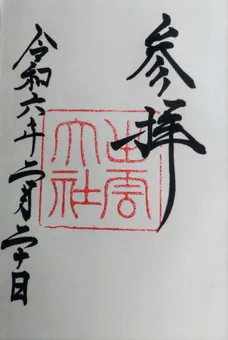 参拝
出雲大社
令和六年二月二十日